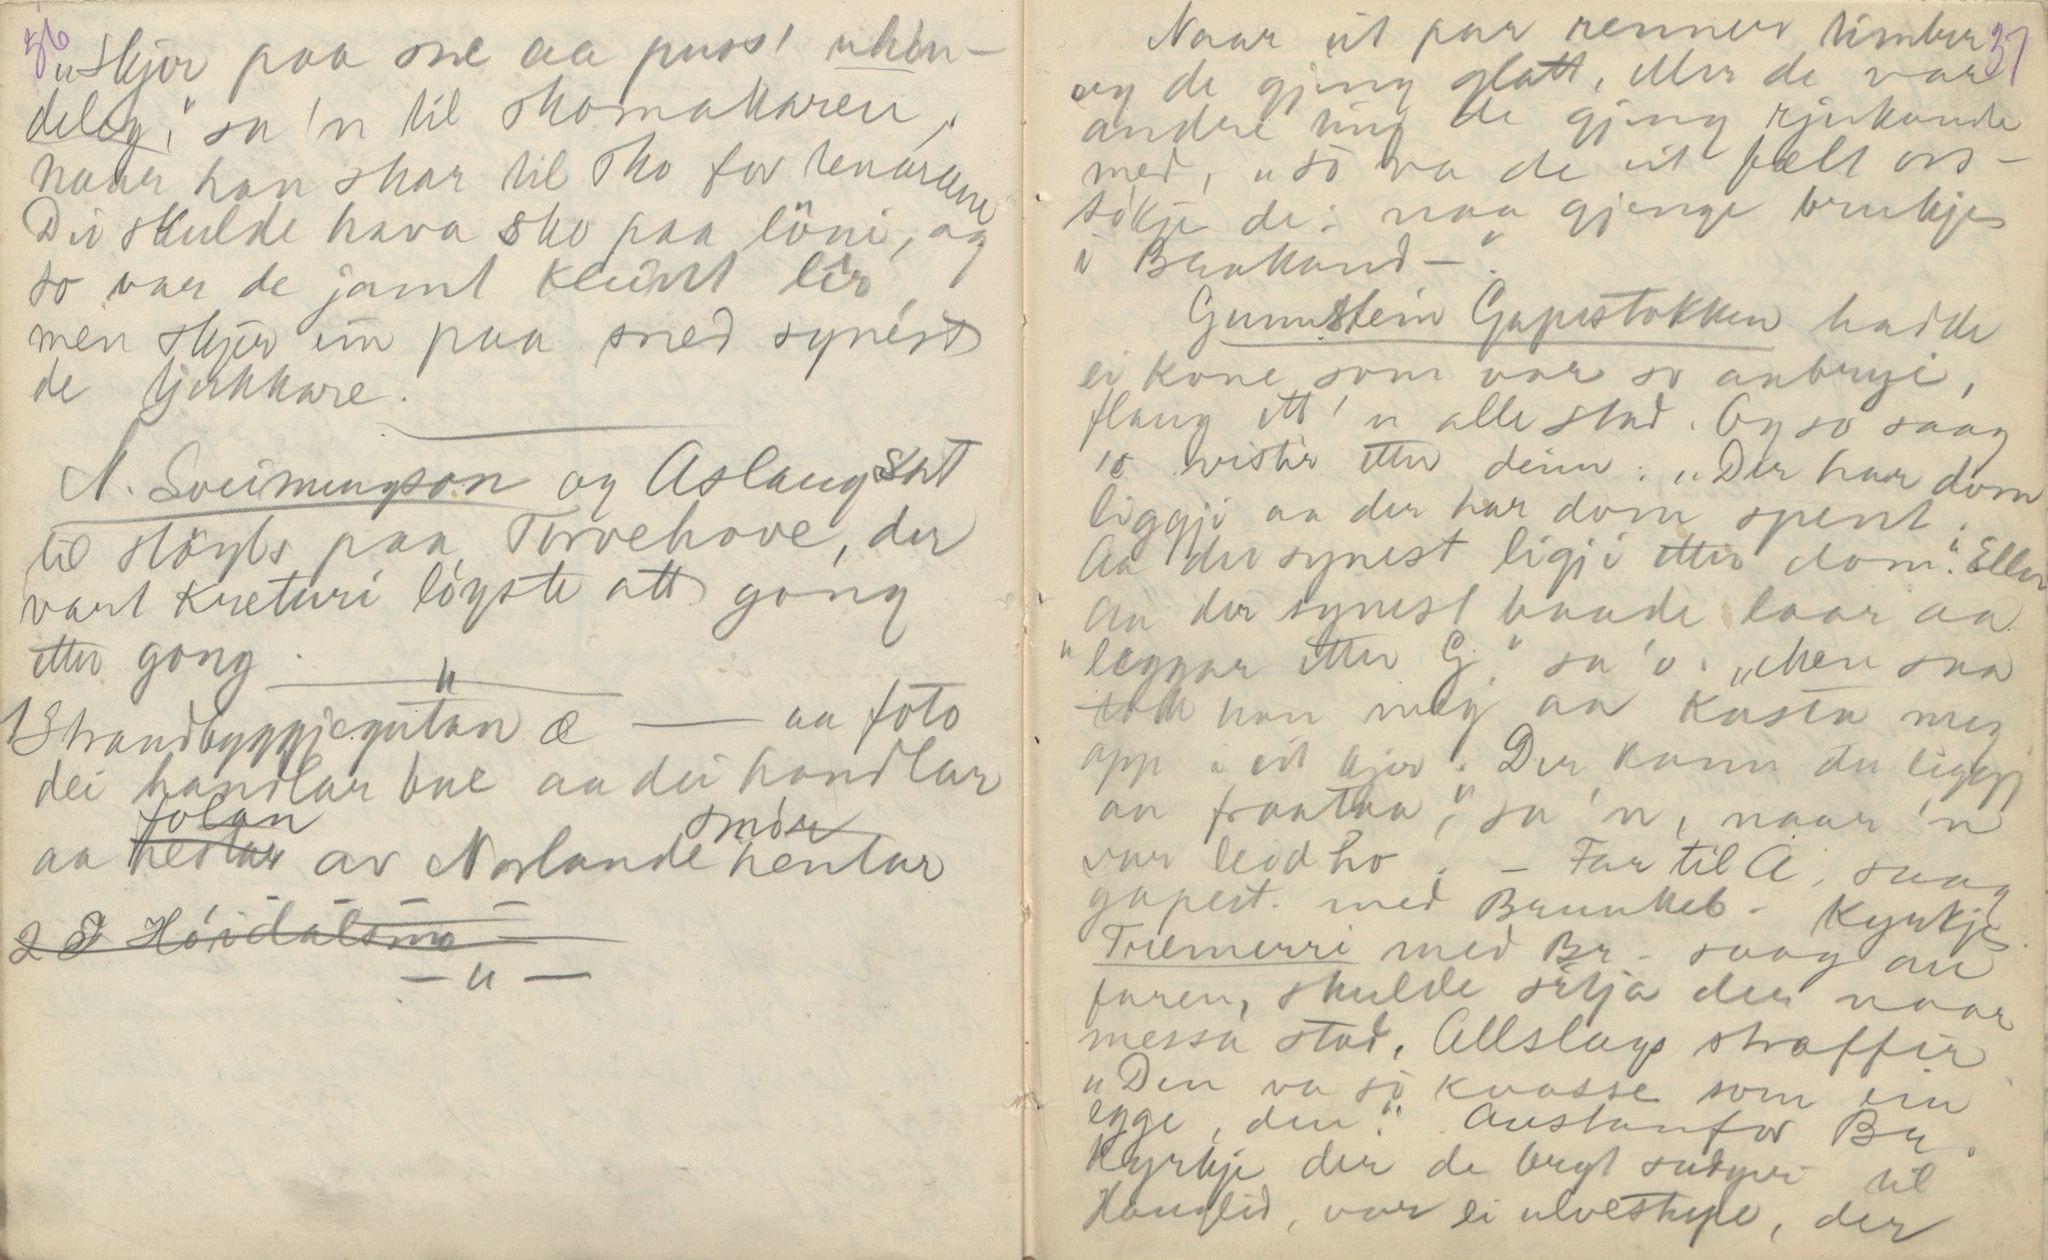 36
"Skjer paa sne aa puss' uhén-
deleg," sa 'n til skomakaren,
naar han skar til sko for tenarane
Dei skulde hava sko paa löni, og
so var de jamt kleint lér,
men skjer ein paa sned synést
de tjukkare.
N. Sveinungson og Aslaug Skt
til stöyls paa Torvehove, der
vart kreturi löyste att gong
etter gong.
"
1 Strandbyggjegutan æ — aa foto
dei handlar bue aa dei handlar
folan smör
aa hestar av Norlande hentar
2 I Höidalsmo
— " —
37
Naar eit par renner timber
og de gjeng glatt, eller de var
andre ting de gjeng rjukande
med, "so va de eit fælt ors-
tökje de: naa gjenge brukjes
i Bandak-".
Gunnstein Gapestokken hadde
ei kone som var so aabryi,
flaug ett' 'n alle stad. Og so saag
'o rister etter deim. "Der har dom
liggji aa der har dom spent.
Aa der synest ligji etter dom". Eller
aa der synest baade laar aa
"leggjar etter G," sa 'o. "Men saa
tok han meg aa kasta meg
opp i eit kjer. Der kann du liggj
aa fraataa," sa 'n, naar 'n
var leid ho. - Far til A. saag
gapest. med Brunkeb. Kyrkje
Treemerri med Br. saag an
faren, skulde sitja der naar
messa stod. Allslags straffer
"Den va so kvasse som ein
egge, den." Austanfor Br.
Kyrkje der de bryt til
Hauglid, var ei ulvestupe, der